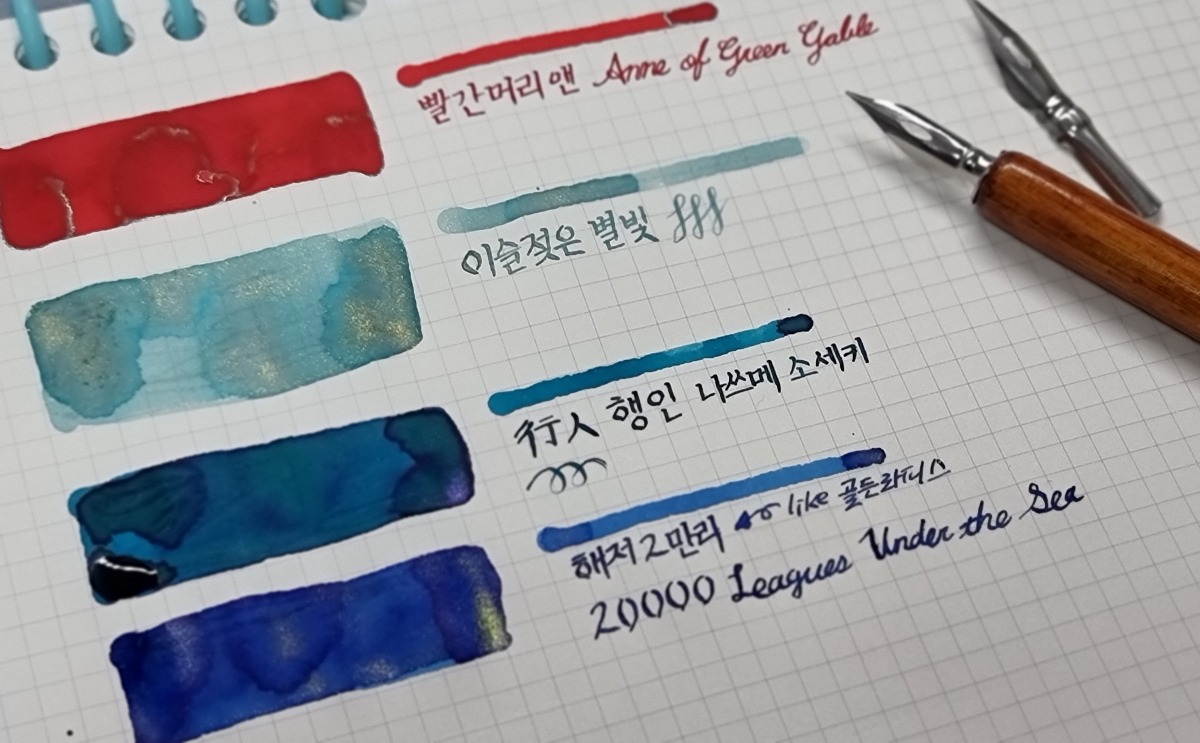 빨간머리앤 Anne of Green Gable
이슬젖은 별빛
行人 행인 나쓰메 소세키
해저2만리 like 골든라피스
20000 Leagues Under the Sea